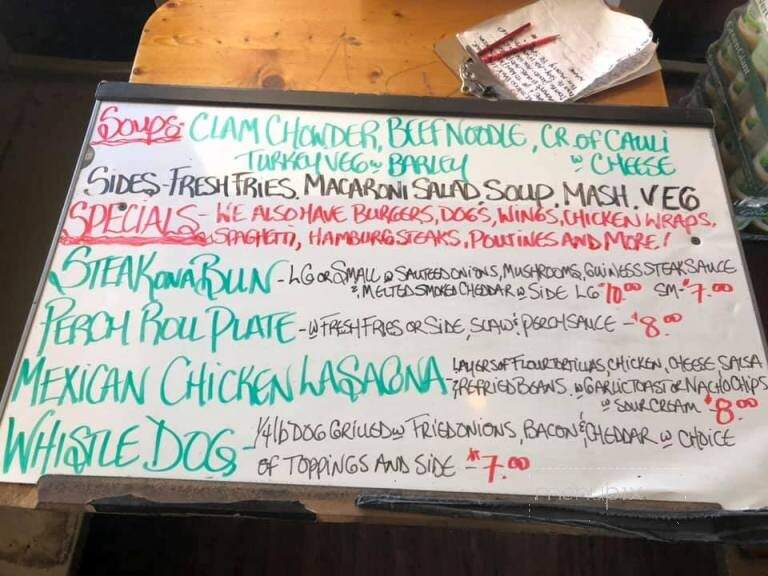 SOUPS: CLAM CHOWDER, BEEF NOODLE, CR. OF CAULI
TURKEY VEG w BARLEY w CHEESE
SIDES - FRESH FRIES. MACARONI SALAD. SOUP. MASH. VEG
SPECIALS - WE ALSO HAVE BURGERS, DOGS, WINGS, CHICKEN WRAPS,
SPAGHETTI, HAMBURG STEAKS, POUTINES AND MORE!
STEAK ON A BUN - LG OR SMALL w SAUTEED ONIONS, MUSHROOMS, GUINESS STEAK SAUCE
& MELTED SMOKED CHEDDAR w SIDE LG $10.00 SM - $7.00
PERCH ROLL PLATE - w FRESH FRIES OR SIDE, SLAW & PERCH SAUCE - $8.00
MEXICAN CHICKEN LASAGNA - LAYERS OF FLOUR TORTILLAS, CHICKEN, CHEESE SALSA
& REFRIED BEANS. w GARLIC TOAST OR NACHO CHIPS
w SOUR CREAM $8.00
WHISTLE DOG - 1/4 lb DOG GRILLED w FRIED ONIONS, BACON & CHEDDAR w CHOICE
OF TOPPINGS AND SIDE - $7.00